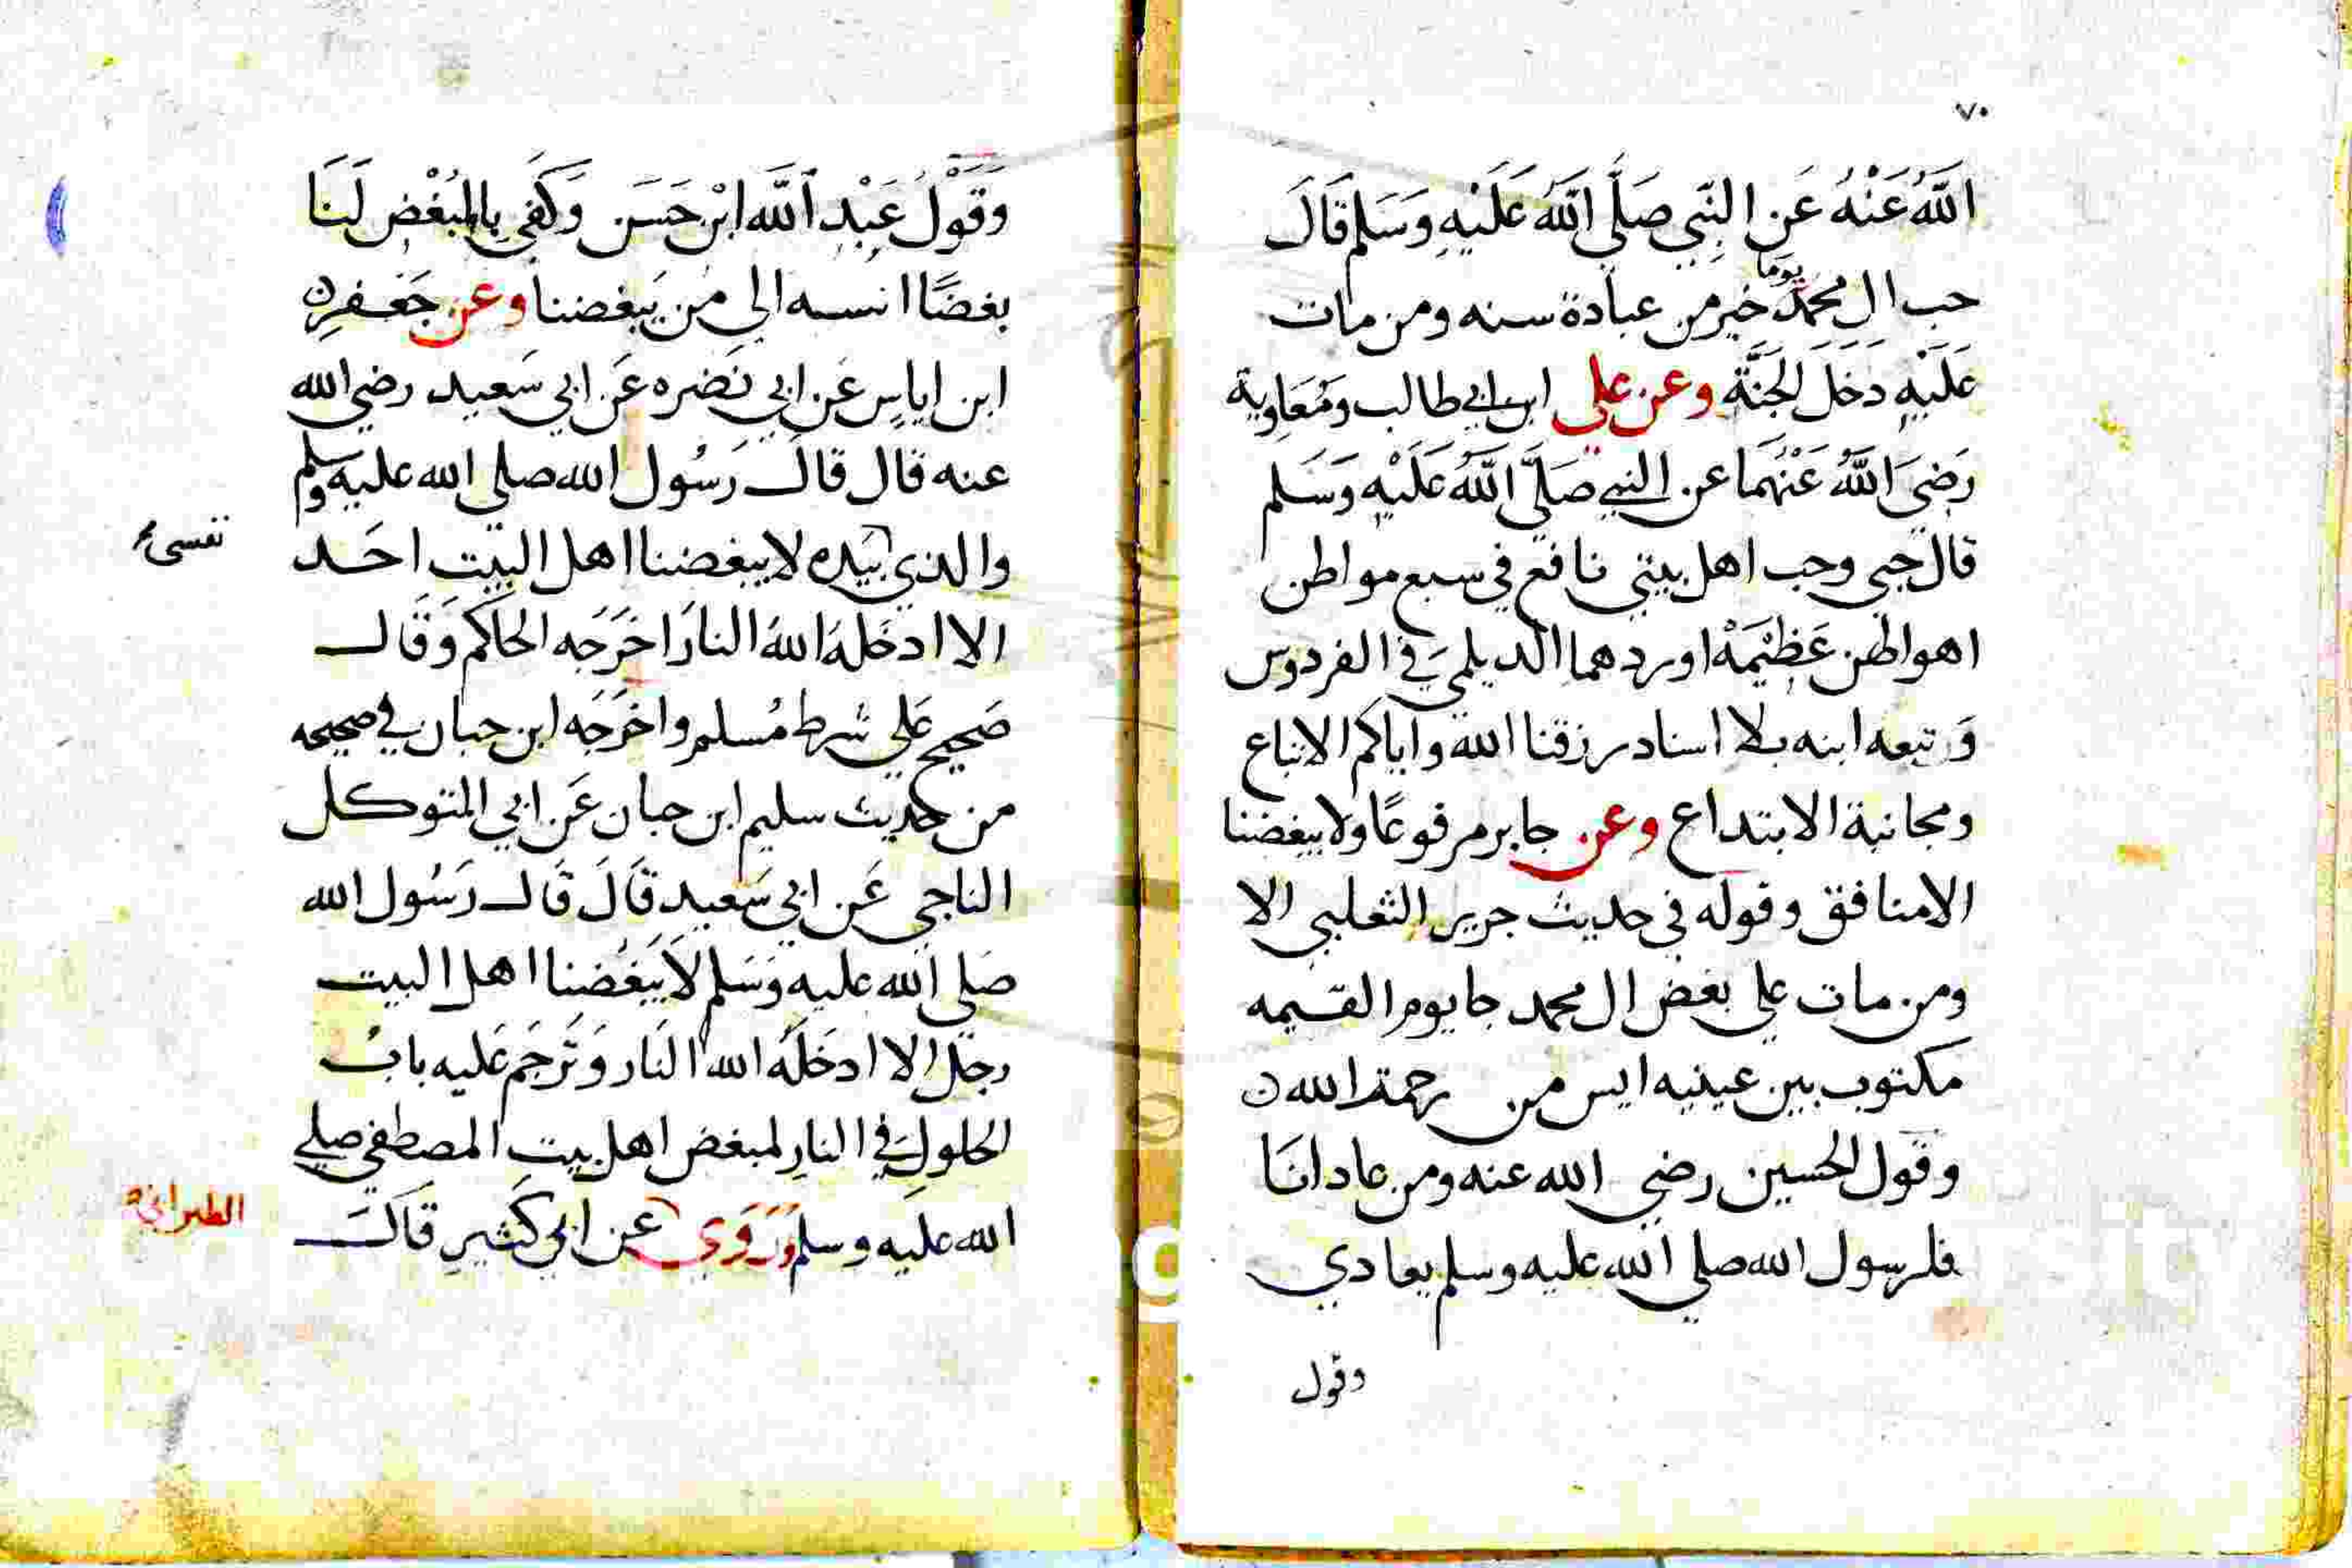 ٧٠
اللَّهُ عَنْهُ عَنِ النَّبِي صَلَّى اللَّهُ عَلَيْهِ وَسَلم قَالَ
حب ال محمد يوما خير من عبادة سنه ومن مات
عَلَيْهِ دَخَلَ الجَنَّة وعن علي ابن ابي طالب وَمُعَاوِية
رَضِيَ اللَّهُ عَنْهُمَا عن النبي صَلَّى اللَّهُ عَلَيْهِ وَسَلم
قال حبي وحب اهل بيتي نافع في سبع مواطن
اهواطن عَظِيْمَةْ اوردهما الديلمي في الفردوس
وَتبعه ابنه بلا اسناد رزقنا الله واياكم الاتباع
ومجانبة الابتداع وعن جابر مرفوعًا ولا يبغضنا
الا منافق وقوله في حديث جرير الثعلبي الا
ومن مات علي بغض ال محمد جا يوم القيمه
مكتوب بين عينيه ايس من رحمة الله
وقول الحسين رضي الله عنه ومن عادانَا
فلرسول الله صلي الله عليه وسلم يعادي
وقول
وَقَوْلُ عَبْدِ اللَّه ابْن حَسَن وَكَفَى بِالمُبْغْضِ لَنَا
بغضًا انسبه الي من يَبغضنا وعن جَعفر
ابن اياسٍ عَن ابي نَضره عَن ابي سَعيد رضي الله
عنه قال قال رَسُول الله صلي الله عليه وسلم
والذي بيده لا يبغضنا اهل البيت احَد
نفسي
الا ادخَلهُ اللهُ النارَ اخرَجَه الحاكم وَقَال
صَحيح عَلي شرط مُسلم واخرَجَه ابن حبان في صحيحه
من حديث سليم ابن حبان عَن ابي المتوكل
الناجي عَن ابي سَعيد قَالَ قَال رَسُول الله
صَلي الله عليه وَسَلم لَا يَبغُضنا اهل البيت
رجل الا ادخَلَهُ الله النَار وَتَرجَم عَليه بابُ
الحلول في النارِ لمبغض اهل بيت المصطفي صلي
الله عليه وسلم وَرَوَي عن ابي كَثير قَال
الطبراني